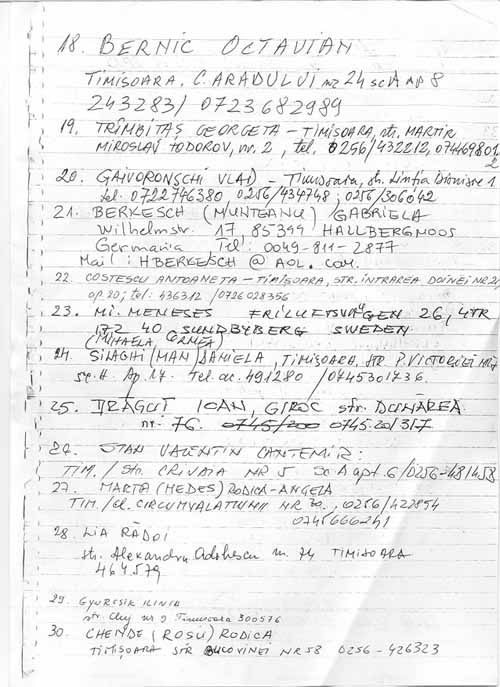 18. BERNIC OCTAVIAN
TIMIȘOARA, C. ARADULUI nr 24 sc A ap 8
243283 / 0723682989
19. TRÎMBIȚAȘ GEORGETA – TIMIȘOARA, str. MARTIR
MIROSLAV TODOROV, nr. 2, tel. 0256/432212, 074469801
2
20. GAIVORONSCHI VLAD – Timișoara, str. Dionisie 1
tel. 0722746380 0256/434748; 0256/306042
21. BERKESCH (MUNTEANU) GABRIELA
Wilhelmstr. 17, 85399 HALLBERGMOOS
Germania Tel: 0049-811-2877
Mail: HBERKESCH @ AOL. com.
22. COSTESCU ANTOANETA – TIMIȘOARA, STR. INTRAREA DOINEI NR 21,
ap. 20; tel: 436312 / 0726028356
23. MI. MENESES FRILUFTSVÄGEN 26, 4TR
172 40 SUNDBYBERG SWEDEN
(MIHAELA CORNEA)
24. SINAGHI (MAN) DANIELA, TIMIȘOARA, STR P. VICTORIEI NR
sc. A Ap 17. Tel. ac. 491280 / 0745301736.
25. DRĂGUȚ IOAN, GIROC str. DUNĂREA
nr. 76. 0745/200 0745.201317
26. STAN VALENTIN CANTEMIR:
TIM. / Str. CRIVAIA NR 5 Sc A apt. 6 / 0256-481458
27. MARTA (MEDES) RODICA-ANGELA
TIM. / CIRCUMVALATIUNII NR , 0256/422854
0745666241
28. LIA RĂDOI
str. Alexandru Odobescu nr. 74 TIMISOARA
464579
29. GYURCSIK ILINIA
str. Cluj nr 9 Timisoara 300576
30. CHENDE (ROSU) RODICA
TIMIȘOARA STR BUCOVINEI NR 58 0256-426323